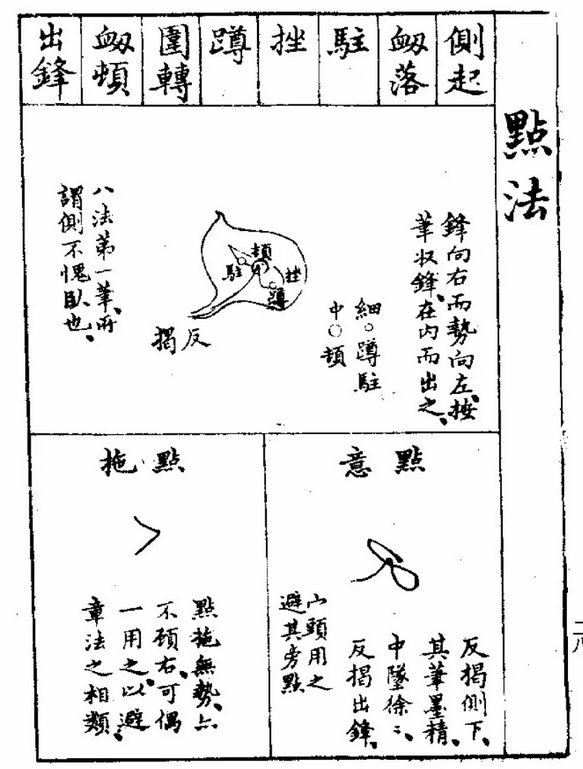 點法
側起
衂落
駐
挫
蹲
圍轉
衂頓
出鋒
鋒向右而勢向左、按
筆收鋒、在内而出之、
細○蹲駐
中○頓
頓
駐
挫
蹲
反
揭
八法第一筆、所
謂側不愧臥也、
點意
反揭側下、
其筆墨精、
中墜徐〻
反揭出鋒、
山頭用之
避其旁點
點拖
點拖無勢、亦
不碩右、可偶
一用之、以避
章法之相類、
二八